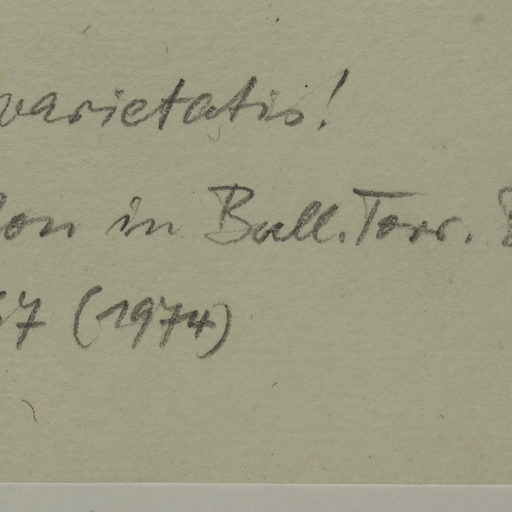 varietatis!
on in Bull. Torr. B
7 (1974)